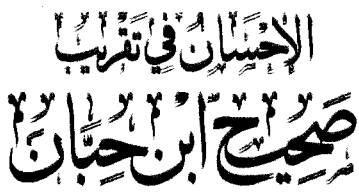 الإحسان في تقريب
صحيح ابن حبان